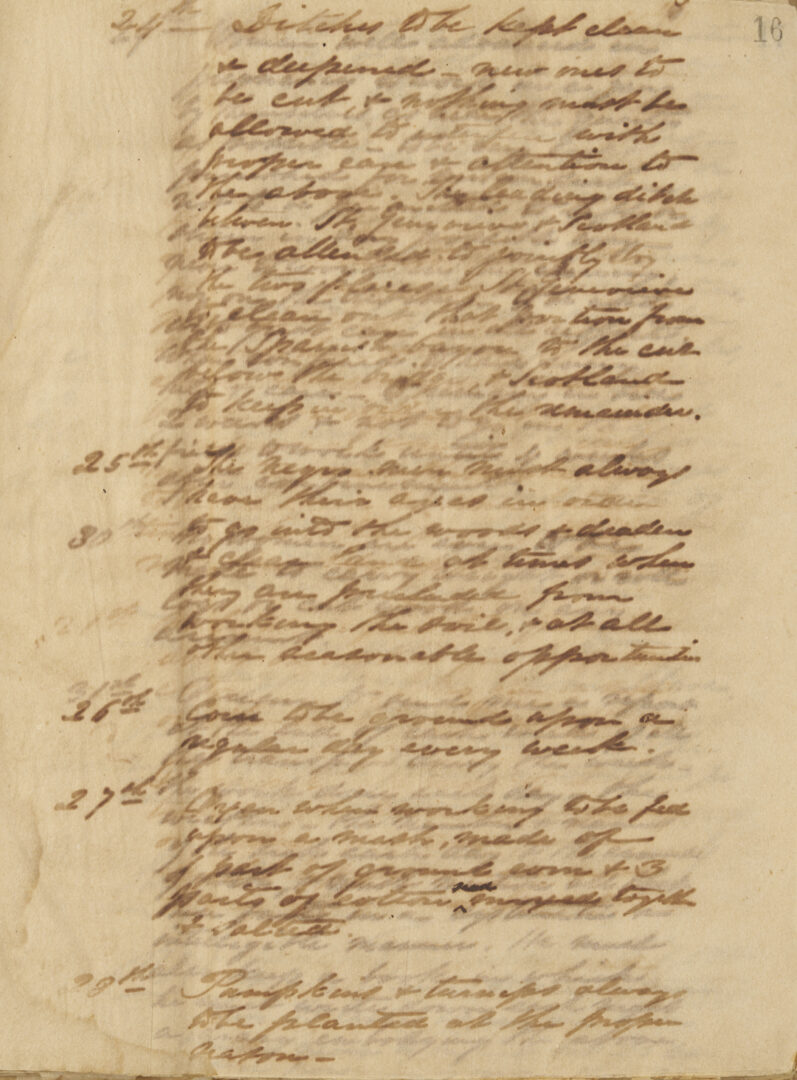 16
24th Ditches to be kept clean
& deepened – new ones to
be cut, & nothing must be
allowed to interfere with
proper care & attention to
the above. The leading ditch
between St Genevieve & Scotland
to be attended to jointly by
the two places. St Genevieve
to clean out that portion from
the Spanish bayou to the cut
below the bridge & Scotland
to keep in order the remainder.
25th The negro men must always
have their axes in order
to go into the woods & deaden
& clear land at times when
they are precluded from
working the soil, & at all
other seasonable opportunities
26th Corn to be ground upon a
regular day every week.
27th Oxen when working to be fed
upon a mash, made of
1 part of ground corn & 3
parts of cotton seed mixed togeth
& salted.
28th Pumpkins & turnips always
to be planted at the proper
season –